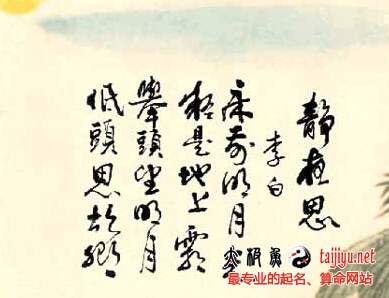 靜夜思
李白
床前明月光
疑是地上霜
舉頭望明月
低頭思故鄉
taijiyu.net
最专业的起名、算命网站